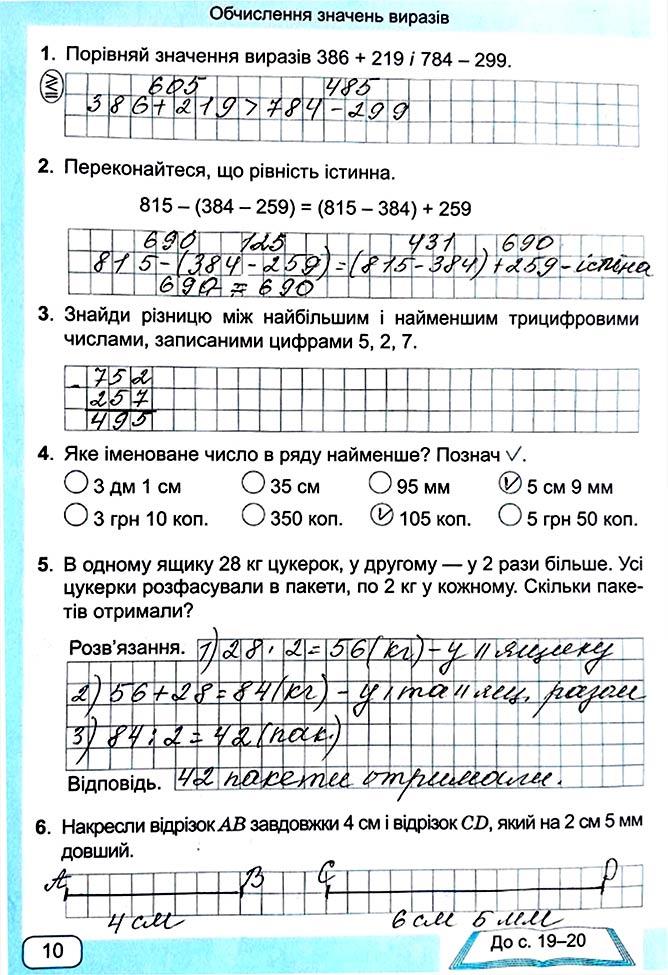 Обчислення значень виразів
1. Порівняй значення виразів 386 + 219 і 784 – 299.
605 485
386+219>784-299
2. Переконайтеся, що рівність істинна.
815 – (384 – 259) = (815 – 384) + 259
690 125 431 690
815-(384-259)=(815-384)+259-істина
690=690
3. Знайди різницю між найбільшим і найменшим трицифровими
числами, записаними цифрами 5, 2, 7.
- 752
257
495
4. Яке іменоване число в ряду найменше? Познач ✓.
3 дм 1 см 35 см 95 мм ✓ 5 см 9 мм
3 грн 10 коп. 350 коп. ✓ 105 коп. 5 грн 50 коп.
5. В одному ящику 28 кг цукерок, у другому — у 2 рази більше. Усі
цукерки розфасували в пакети, по 2 кг у кожному. Скільки паке-
тів отримали?
Розв'язання. 1) 28·2=56(кг)-у II ящику
2) 56+28=84(кг)-у I та II ящ. разом
3) 84:2=42(пак.)
Відповідь. 42 пакети отримали.
6. Накресли відрізок AB завдовжки 4 см і відрізок CD, який на 2 см 5 мм
довший.
A B C D
4 см 6 см 5 мм
10
До с. 19–20